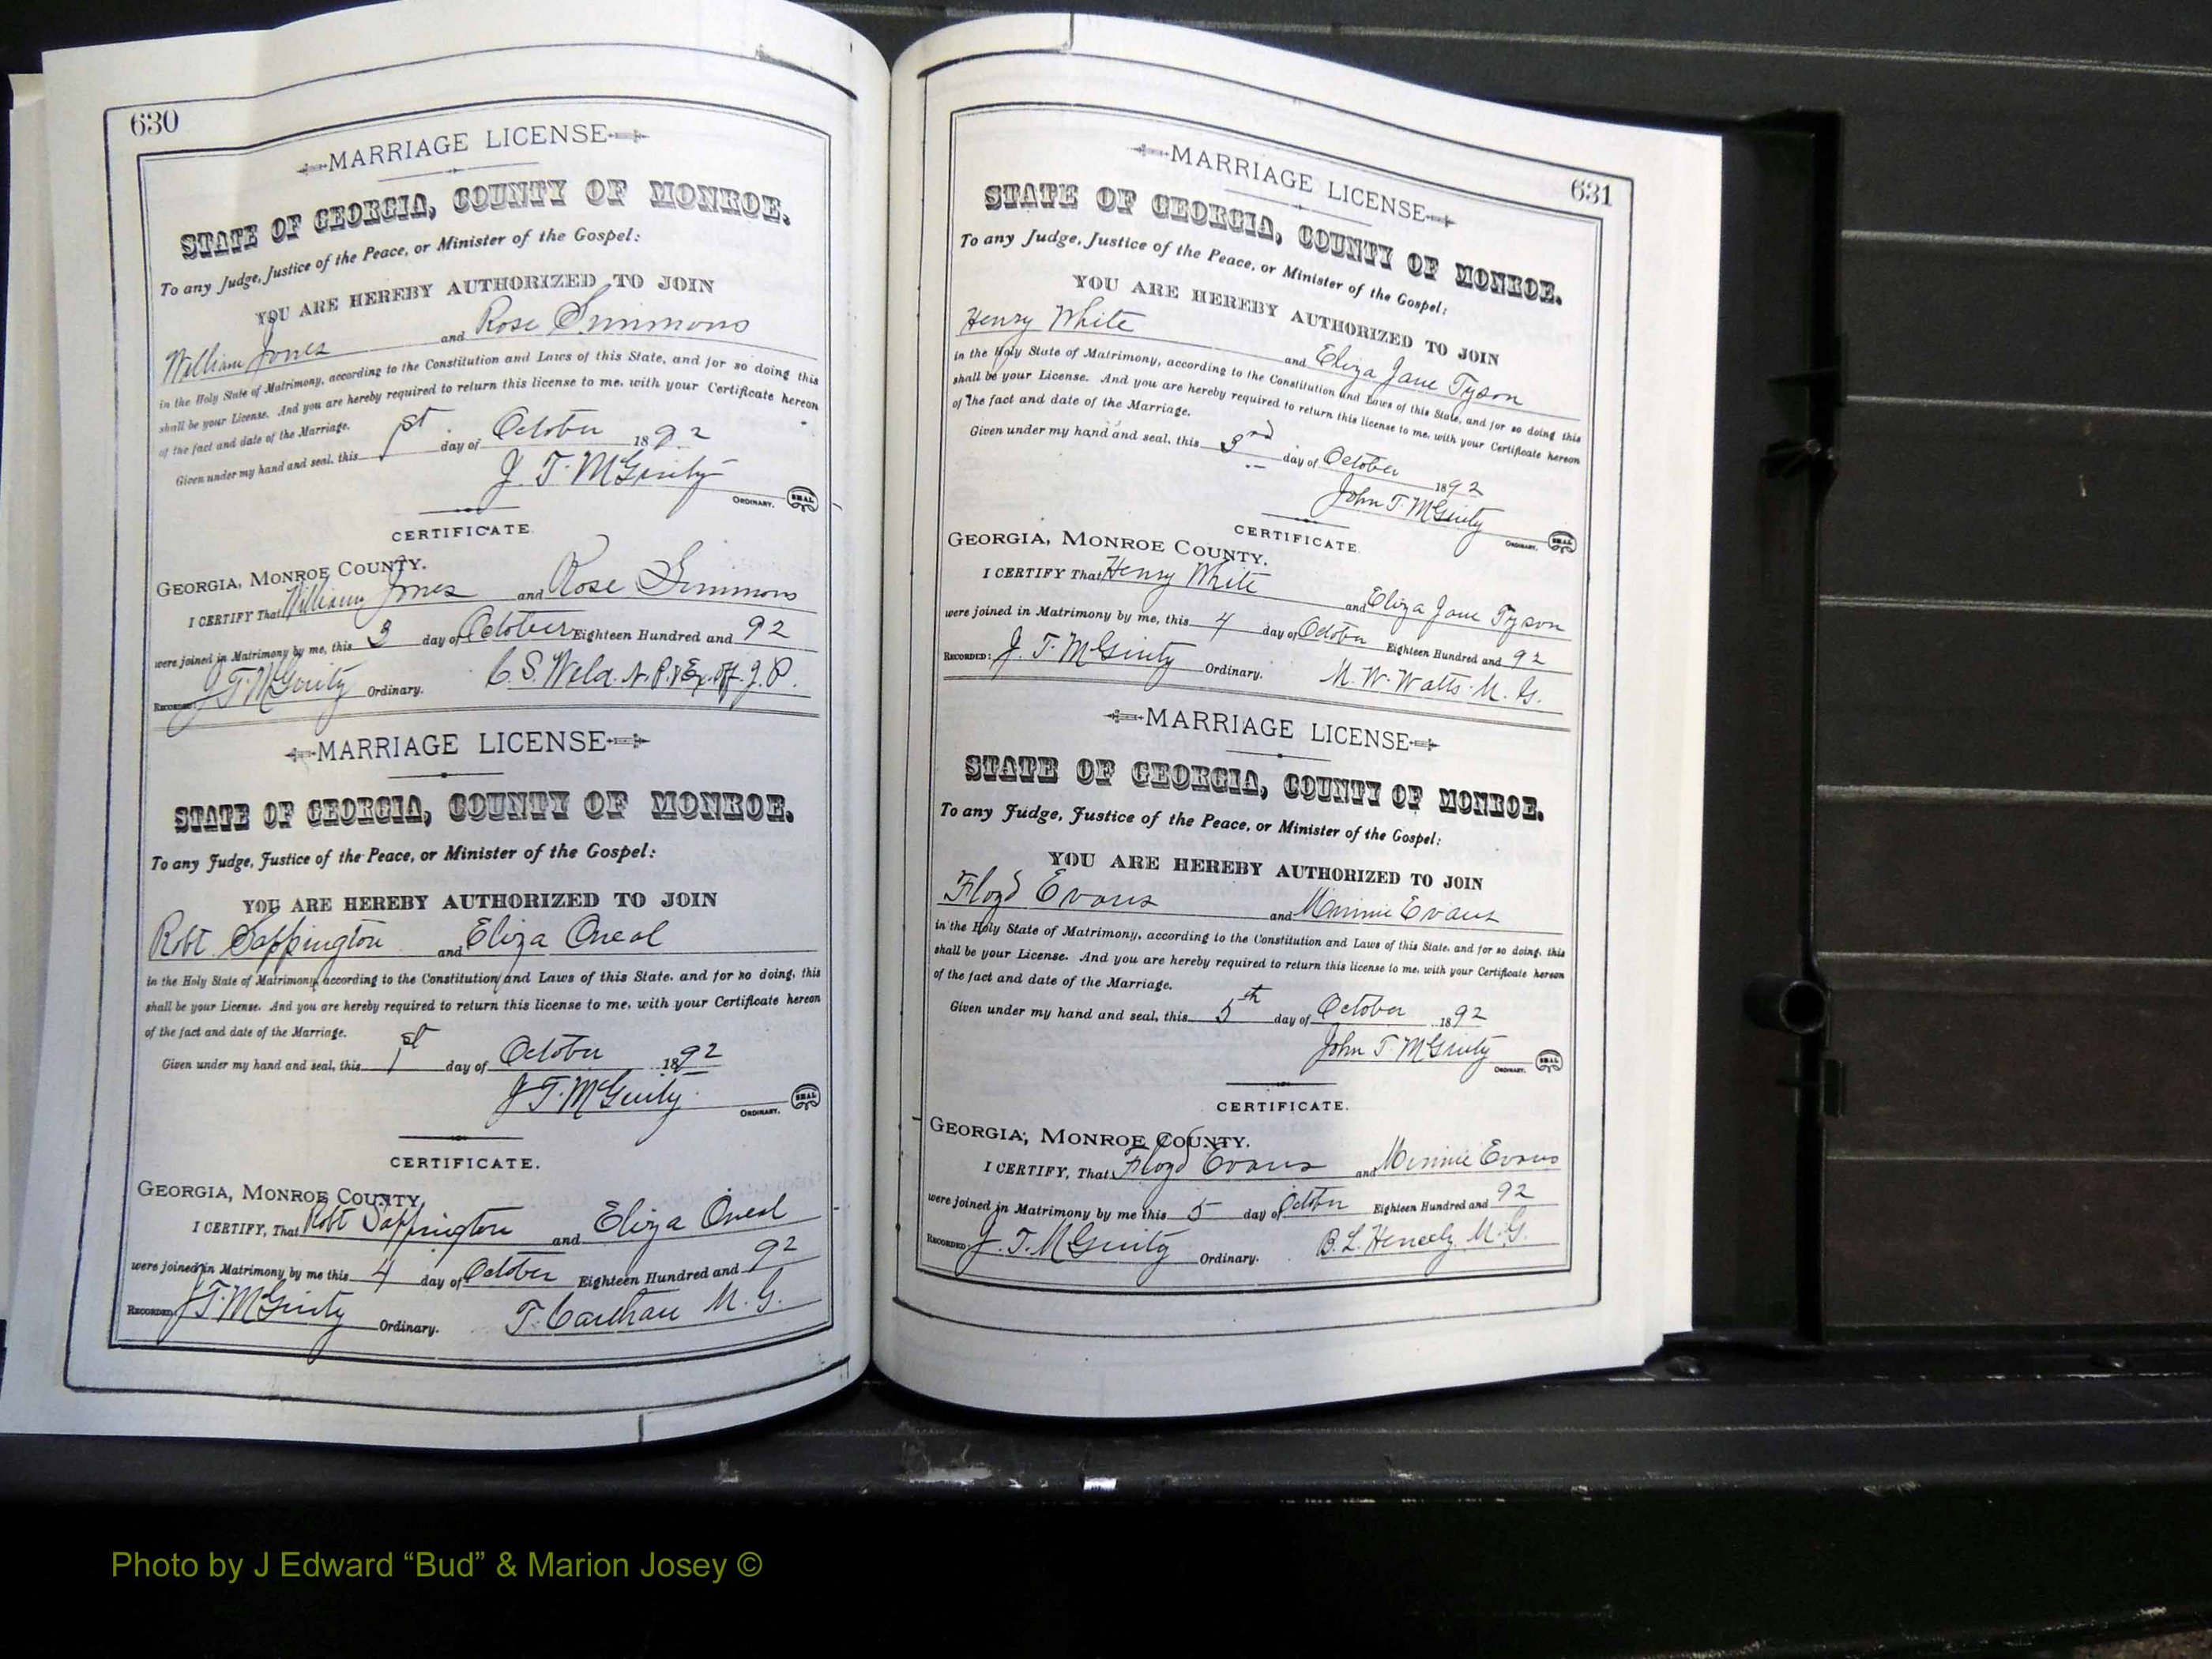 630
MARRIAGE LICENSE
STATE OF GEORGIA, COUNTY OF MONROE.
To any Judge, Justice of the Peace, or Minister of the Gospel:
YOU ARE HEREBY AUTHORIZED TO JOIN
William Jones and Rose Simmons
in the Holy State of Matrimony, according to the Constitution and Laws of this State, and for so doing this
shall be your License. And you are hereby required to return this license to me, with your Certificate hereon
of the fact and date of the Marriage.
Given under my hand and seal, this 1st day of October 1892
J. T. McGinty
ORDINARY. SEAL
CERTIFICATE.
GEORGIA, MONROE COUNTY.
I CERTIFY That William Jones and Rose Simmons
were joined in Matrimony by me, this 3 day of October Eighteen Hundred and 92
RECORDED: J. T. McGinty Ordinary. C. S. Weld. N. P. & Ex. off. J. P.
MARRIAGE LICENSE
STATE OF GEORGIA, COUNTY OF MONROE.
To any Judge, Justice of the Peace, or Minister of the Gospel:
YOU ARE HEREBY AUTHORIZED TO JOIN
Robt. Sappington and Eliza Oneal
in the Holy State of Matrimony, according to the Constitution and Laws of this State, and for so doing, this
shall be your License. And you are hereby required to return this license to me, with your Certificate hereon
of the fact and date of the Marriage.
Given under my hand and seal, this 1st day of October 1892
J. T. McGinty
ORDINARY. SEAL
CERTIFICATE.
GEORGIA, MONROE COUNTY,
I CERTIFY, That Robt Sappington and Eliza Oneal
were joined in Matrimony by me this 4 day of October Eighteen Hundred and 92
RECORDED: J. T. McGinty Ordinary. T. M. G.
631
MARRIAGE LICENSE
STATE OF GEORGIA, COUNTY OF MONROE.
To any Judge, Justice of the Peace, or Minister of the Gospel:
YOU ARE HEREBY AUTHORIZED TO JOIN
Henry White and Eliza Jane Tyson
in the Holy State of Matrimony, according to the Constitution and Laws of this State, and for so doing this
shall be your License. And you are hereby required to return this license to me, with your Certificate hereon
of the fact and date of the Marriage.
Given under my hand and seal, this 3rd day of October 1892
John T. McGinty
ORDINARY. SEAL
CERTIFICATE.
GEORGIA, MONROE COUNTY.
I CERTIFY That Henry White and Eliza Jane Tyson
were joined in Matrimony by me, this 4 day of October Eighteen Hundred and 92
RECORDED: J. T. McGinty Ordinary. M. W. Watts. M. G.
MARRIAGE LICENSE
STATE OF GEORGIA, COUNTY OF MONROE.
To any Judge, Justice of the Peace, or Minister of the Gospel:
YOU ARE HEREBY AUTHORIZED TO JOIN
Floyd Evans and Minnie Evans
in the Holy State of Matrimony, according to the Constitution and Laws of this State, and for so doing, this
shall be your License. And you are hereby required to return this license to me, with your Certificate hereon
of the fact and date of the Marriage.
Given under my hand and seal, this 5th day of October 1892
John T. McGinty
ORDINARY. SEAL
CERTIFICATE.
GEORGIA, MONROE COUNTY.
I CERTIFY, That Floyd Evans and Minnie Evans
were joined in Matrimony by me this 5 day of October Eighteen Hundred and 92
RECORDED: J. T. McGinty Ordinary. B. L. M. G.
Photo by J Edward “Bud” & Marion Josey ©